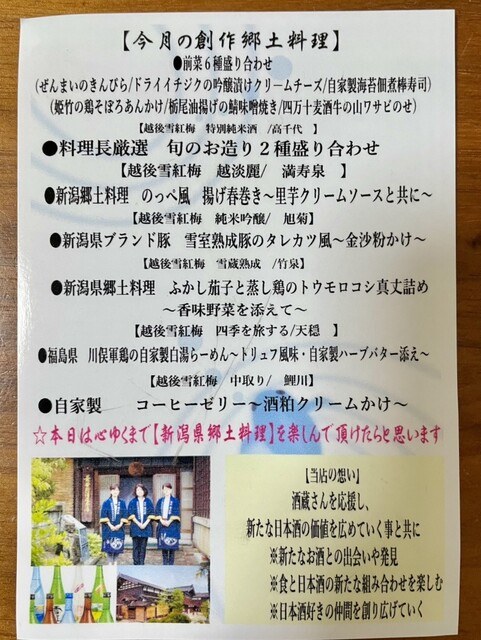 【今月の創作郷土料理】
●前菜6種盛り合わせ
(ぜんまいのきんぴら/ドライイチジクの吟醸漬けクリームチーズ/自家製海苔佃煮棒寿司)
(姫竹の鶏そぼろあんかけ/栃尾油揚げの鯖味噌焼き/四万十麦酒牛の山ワサビのせ)
【越後雪紅梅　特別純米酒　/高千代　】
●料理長厳選　旬のお造り２種盛り合わせ
【越後雪紅梅　越淡麗/　満寿泉　】
●新潟郷土料理　のっぺ風　揚げ春巻き～里芋クリームソースと共に～
【越後雪紅梅　純米吟醸/　旭菊】
●新潟県ブランド豚　雪室熟成豚のタレカツ風～金沙粉かけ～
【越後雪紅梅　雪蔵熟成　/竹泉】
●新潟県郷土料理　ふかし茄子と蒸し鶏のトウモロコシ真丈詰め
～香味野菜を添えて～
【越後雪紅梅　四季を旅する/天穏　】
●福島県　川俣軍鶏の自家製白湯らーめん～トリュフ風味・自家製ハーブバター添え～
【越後雪紅梅　中取り/　鯉川】
●自家製　　コーヒーゼリー～酒粕クリームかけ～
☆本日は心ゆくまで【新潟県郷土料理】を楽しんで頂けたらと思います
【当店の想い】
酒蔵さんを応援し、
新たな日本酒の価値を広めていく事と共に
※新たなお酒との出会いや発見
※食と日本酒の新たな組み合わせを楽しむ
※日本酒好きの仲間を創り広げていく